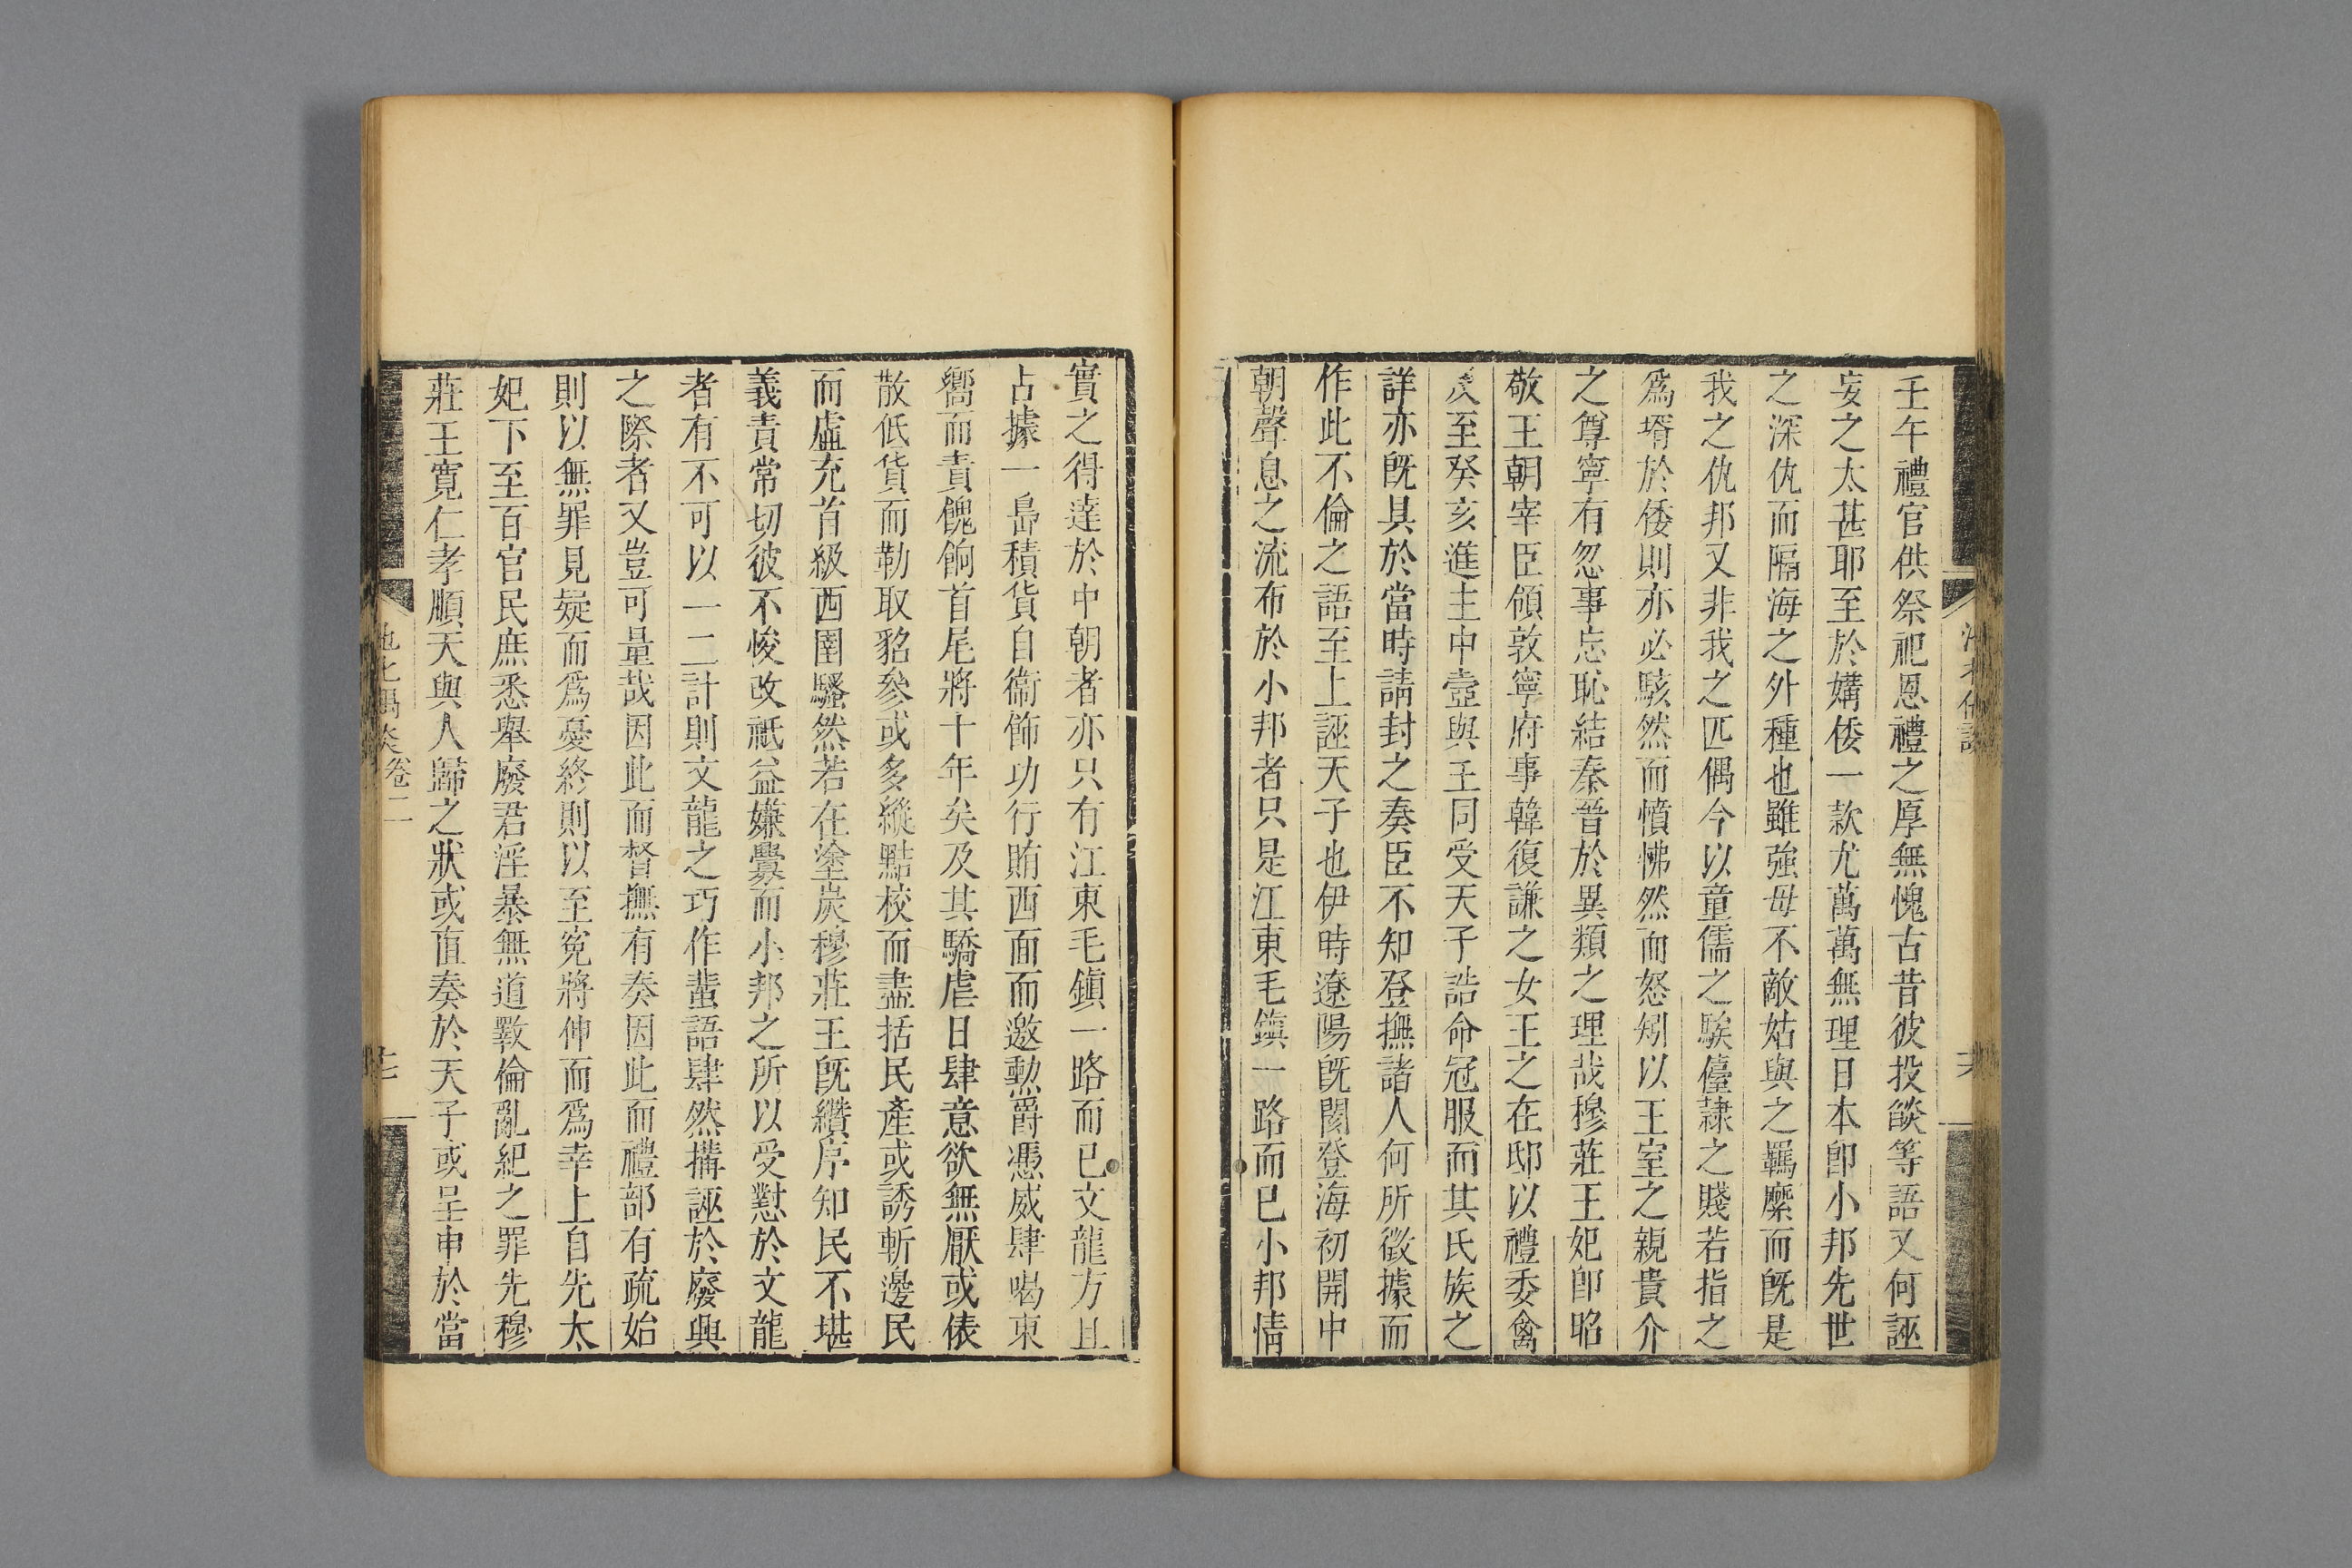 壬午禮官供祭祀恩禮之厚無愧古昔彼投燄等語又何誣
妄之太甚耶至於媾倭一款尤萬萬無理日本卽小邦先世
之深仇而隔海之外種也雖強毋不敵姑與之羈縻而旣是
我之仇邦又非我之匹偶今以童儒之騃儓隷之賤若指之
爲壻於倭則亦必駭然而憤怫然而怒矧以王室之親貴介
之尊寧有忽事忘恥結秦晉於異類之理哉穆莊王妃卽昭
敬王朝宰臣領敦寧府事韓復謙之女王之在邸以禮委禽
及至癸亥進主中壼與王同受天子誥命冠服而其氏族之
詳亦旣具於當時請封之奏臣不知登撫諸人何所徵據而
作此不倫之語至上誣天子也伊時遼陽旣閡登海初開中
朝聲息之流布於小邦者只是江東毛鎭一路而已小邦情
實之得達於中朝者亦只有江東毛鎭一路而已文龍方且
占據一島積貨自衞飾功行賄西面而邀勳爵憑威肆喝東
嚮而責餽餉首尾將十年矣及其驕虐日肆意欲無厭或俵
散低貨而勒取貂參或多縱點校而盡括民產或誘斬邊民
而虛充首級西圉騷然若在塗炭穆莊王旣纘序知民不堪
義責常切彼不悛改祇益嫌釁而小邦之所以受懟於文龍
者有不可以一二計則文龍之巧作蜚語肆然搆誣於廢興
之際者又豈可量哉因此而督撫有奏因此而禮部有疏始
則以無罪見疑而爲憂終則以至寃將伸而爲幸上自先太
妃下至百官民庶悉舉廢君淫暴無道斁倫亂紀之罪先穆
莊王寬仁孝順天與人歸之狀或直奏於天子或呈申於當
池北偶談卷二